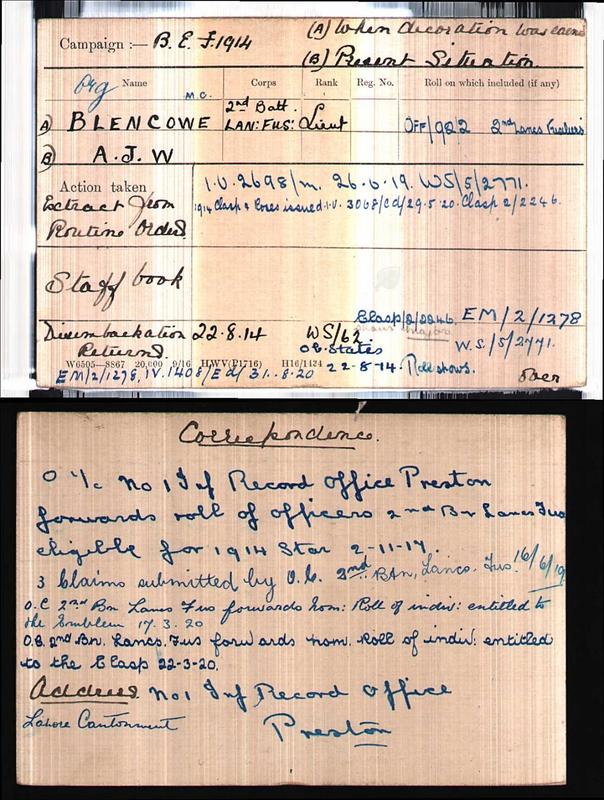 Campaign :— B.E.F. 1914
(A) When decoration was earned
(B) Present Situation
Name Corps Rank Reg. No. Roll on which included (if any)
M.C.
2nd Batt.
(A) BLENCOWE LAN: FUS: Lieut OFF/922 2nd Lancs Fusiliers
(B) A.J.W
Action taken I.V. 2698/m. 26.6.19. WS/5/2771.
Extract from 1914 Clasp & Roses issued. I.V. 3068/Cd/29.5.20. Clasp 2/2246.
Routine Orders
Staff book
Clasp/2/2246. EM/2/1278
Disembarkation 22.8.14 WS/62 W.S./5/2771.
Returns. O.C. States
W6505—8867 20,000 9/16 HWV(P1716) H16/1434 22-8-14. Roll shows.
EM/2/1278, IV. 1408/Ed/31..8.20 over
Correspondence.
O i/c No 1 Inf Record Office Preston
forwards roll of officers 2nd Bn Lancs Fus
eligible for 1914 Star 2-11-17.
3 Claims submitted by O.C. 2nd Btn, Lancs. Fus. 16/6/19
O.C 2nd Bn Lancs Fus forwards Nom: Roll of indiv: entitled to
the Emblem 17.3.20
O.C. 2nd Bn. Lancs. Fus forwards nom. Roll of indiv: entitled
to the Clasp 22-3-20.
Address. No 1 Inf Record Office
Lahore Cantonment Preston